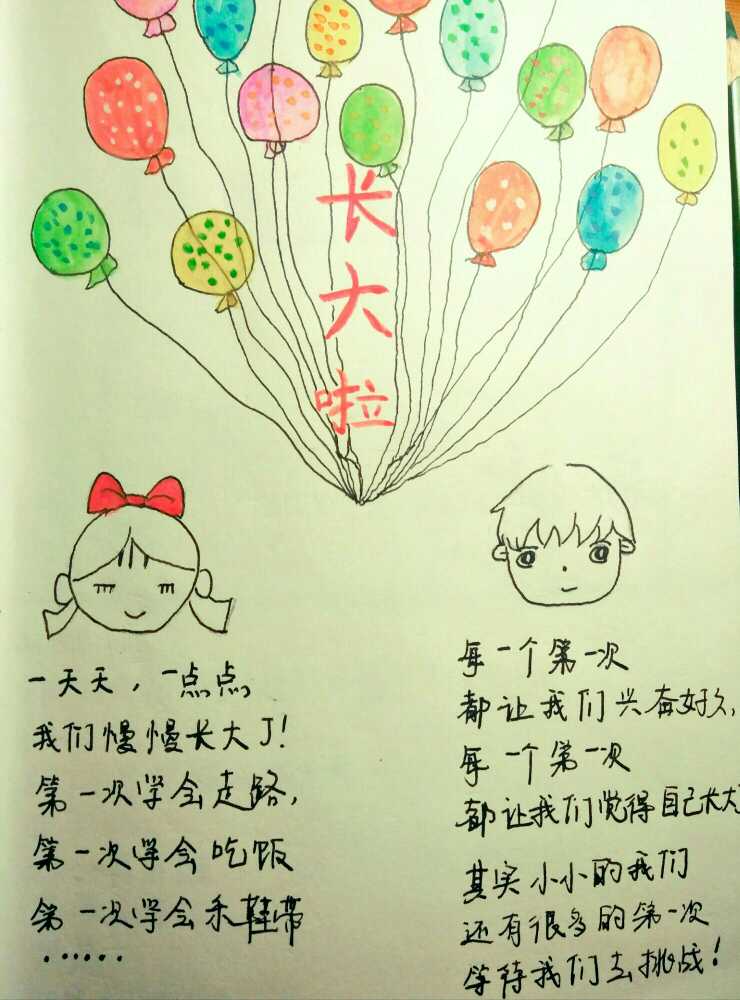 长大啦
一天天，一点点
我们慢慢长大了！
第一次学会走路，
第一次学会吃饭
第一次学会系鞋带
……
每一个第一次
都让我们兴奋好久，
每一个第一次
都让我们觉得自己长大
其实小小的我们
还有很多的第一次
等待我们去挑战！